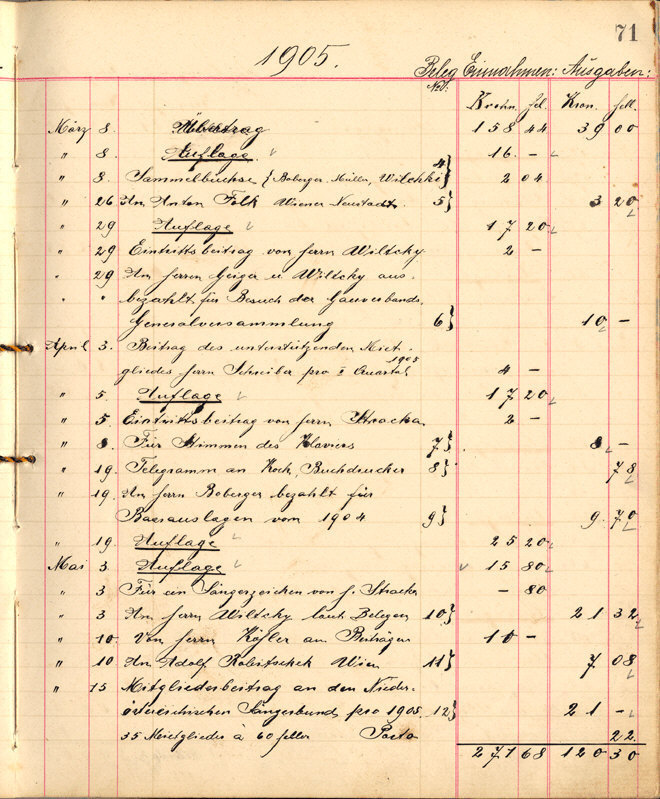 71
1905.
Beleg Einnahmen: Ausgaben:
No.
Kronen hel. Kron. hell.
März 8. Übertrag 158 44 39 00
" 8. Auflage 16. –
" 8. Sammelbüchse {Boberger. Müller, Witchki 4} 2 04
" 26 An Anton Folk Wiener Neustadt. 5} 3 20
" 29 Auflage 17 20
" 29 Eintrittsbeitrag von herrn Wiltchky 2 –
" 29 An herren Geiger u Wiltchky aus-
" " bezahlt für Besuch der Gauverbands.
Generalversammlung 6} 10 –
April 3. Beitrag des unterstützenden Mit-
gliedes herrn Schreiber pro I Quartal 1905 4 –
" 5. Auflage 17 20
" 5. Eintrittsbeitrag von herrn Stracka 2 –
" 8. Für Stimmen des Klaviers 7} 8 –
" 19. Telegramm an Koch, Buchdrucker 8} 78
" 19. An herrn Boberger bezahlt für
Barauslagen vom 1904 9} 9. 70
" 19. Auflage 25 20
Mai 3 Auflage 15 80
" 3 Für ein Sängerzeichen von h. Stracka – 80
" 3 An herrn Wiltchky laut Belegen 10} 21 32
" 10. Von herrn Köfler an Beiträgen 10 –
" 10 An Adolf Robitschek Wien 11} 7 08
" 15 Mitgliederbeitrag an den Nieder-
österreichischen Sängerbund pro 1905. 12} 21 –
35 Mitglieder à 60 heller Porto 22
271 68 120 30